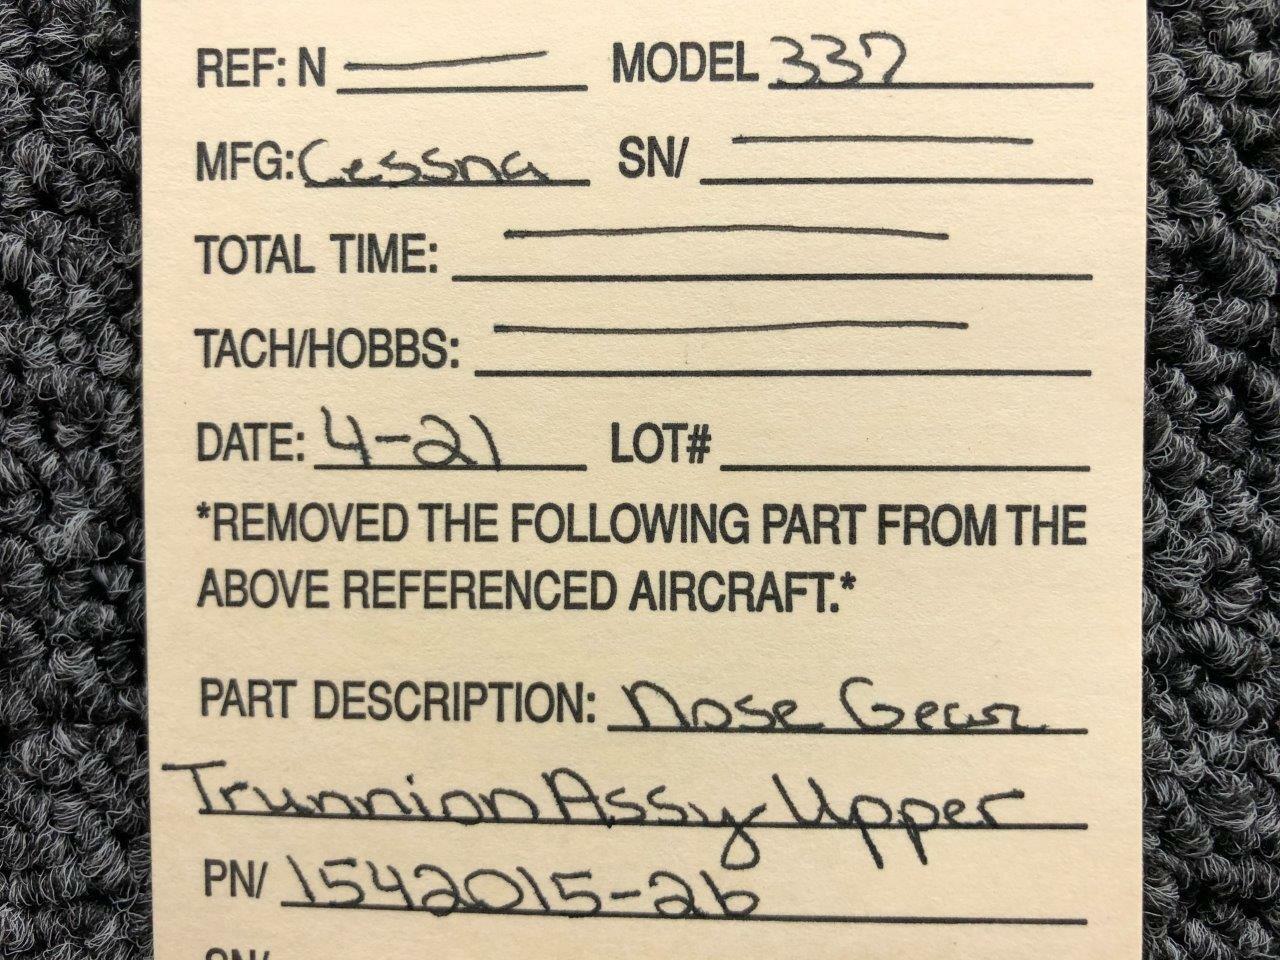 REF: N MODEL 337
MFG: Cessna SN/
TOTAL TIME:
TACH/HOBBS:
DATE: 4-21 LOT#
*REMOVED THE FOLLOWING PART FROM THE
ABOVE REFERENCED AIRCRAFT.*
PART DESCRIPTION: Nose Gear
Trunnion Assy Upper
PN/ 1542015-26
SN/